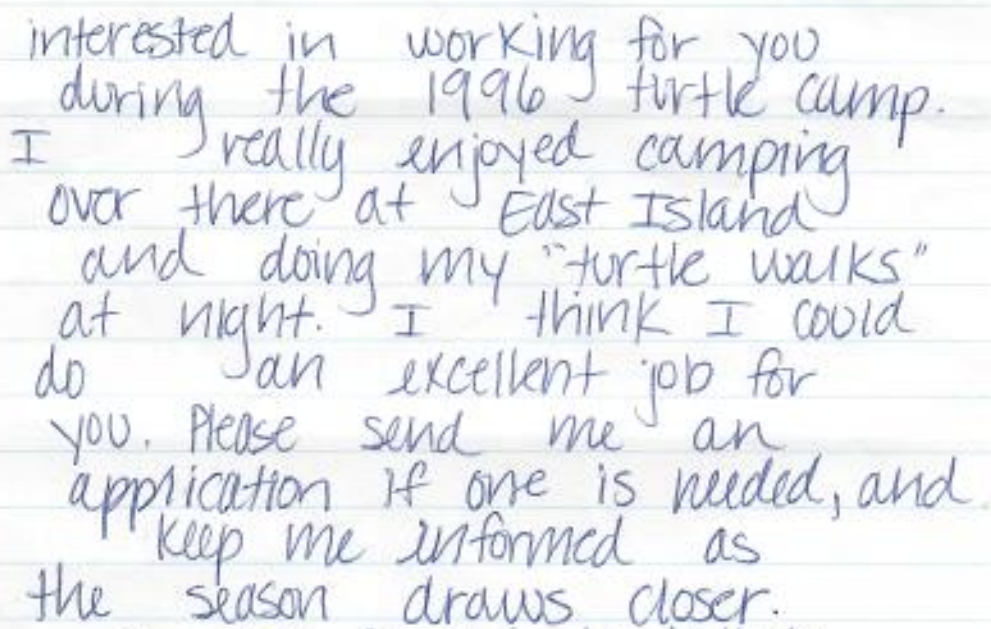 interested in working for you
during the 1996 turtle camp.
I really enjoyed camping
over there at East Island
and doing my "turtle walks"
at night. I think I could
do an excellent job for
you. Please send me an
application if one is needed, and
keep me informed as
the season draws closer.